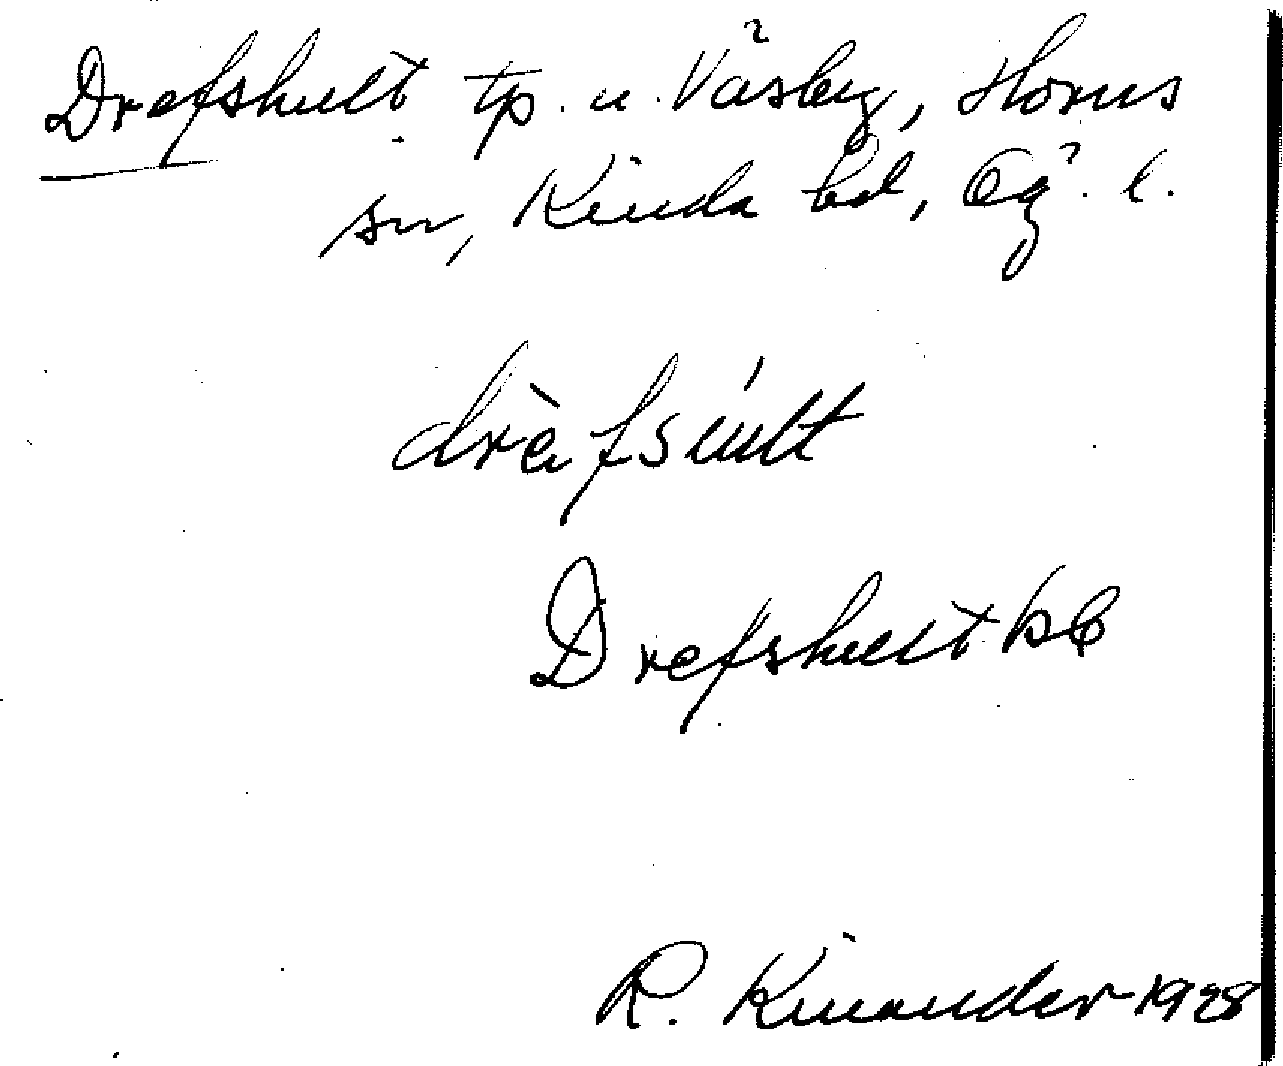 Drefshult tp. u. Väsby, Horns
sn, Kinda hd, Ög. l.
drèfsúlt
Drefshult kb
R. Kinander 1928